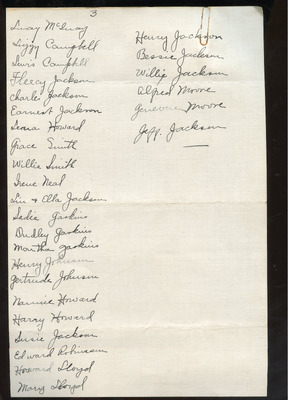 3
Lucy McLucy
Lizzy Campbell
Lewis Campbell
Fleecy Jackson
Charles Jackson
Earnest Jackson
Leana Howard
Grace Smith
Willie Smith
Irene Neal
Lin + Ella Jackson
Sadie Gaskins
Dudley Gaskins
Martha Gaskins
Henry Johnson
Gertrude Johnson
Nannie Howard
Harry Howard
Susie Jackson
Edward Robinson
Howard Lloyd
Mary Lloyd
Henry Jackson
Bessie Jackson
Willie Jackson
Alfred Moore
Genevieve Moore
Jeff. Jackson